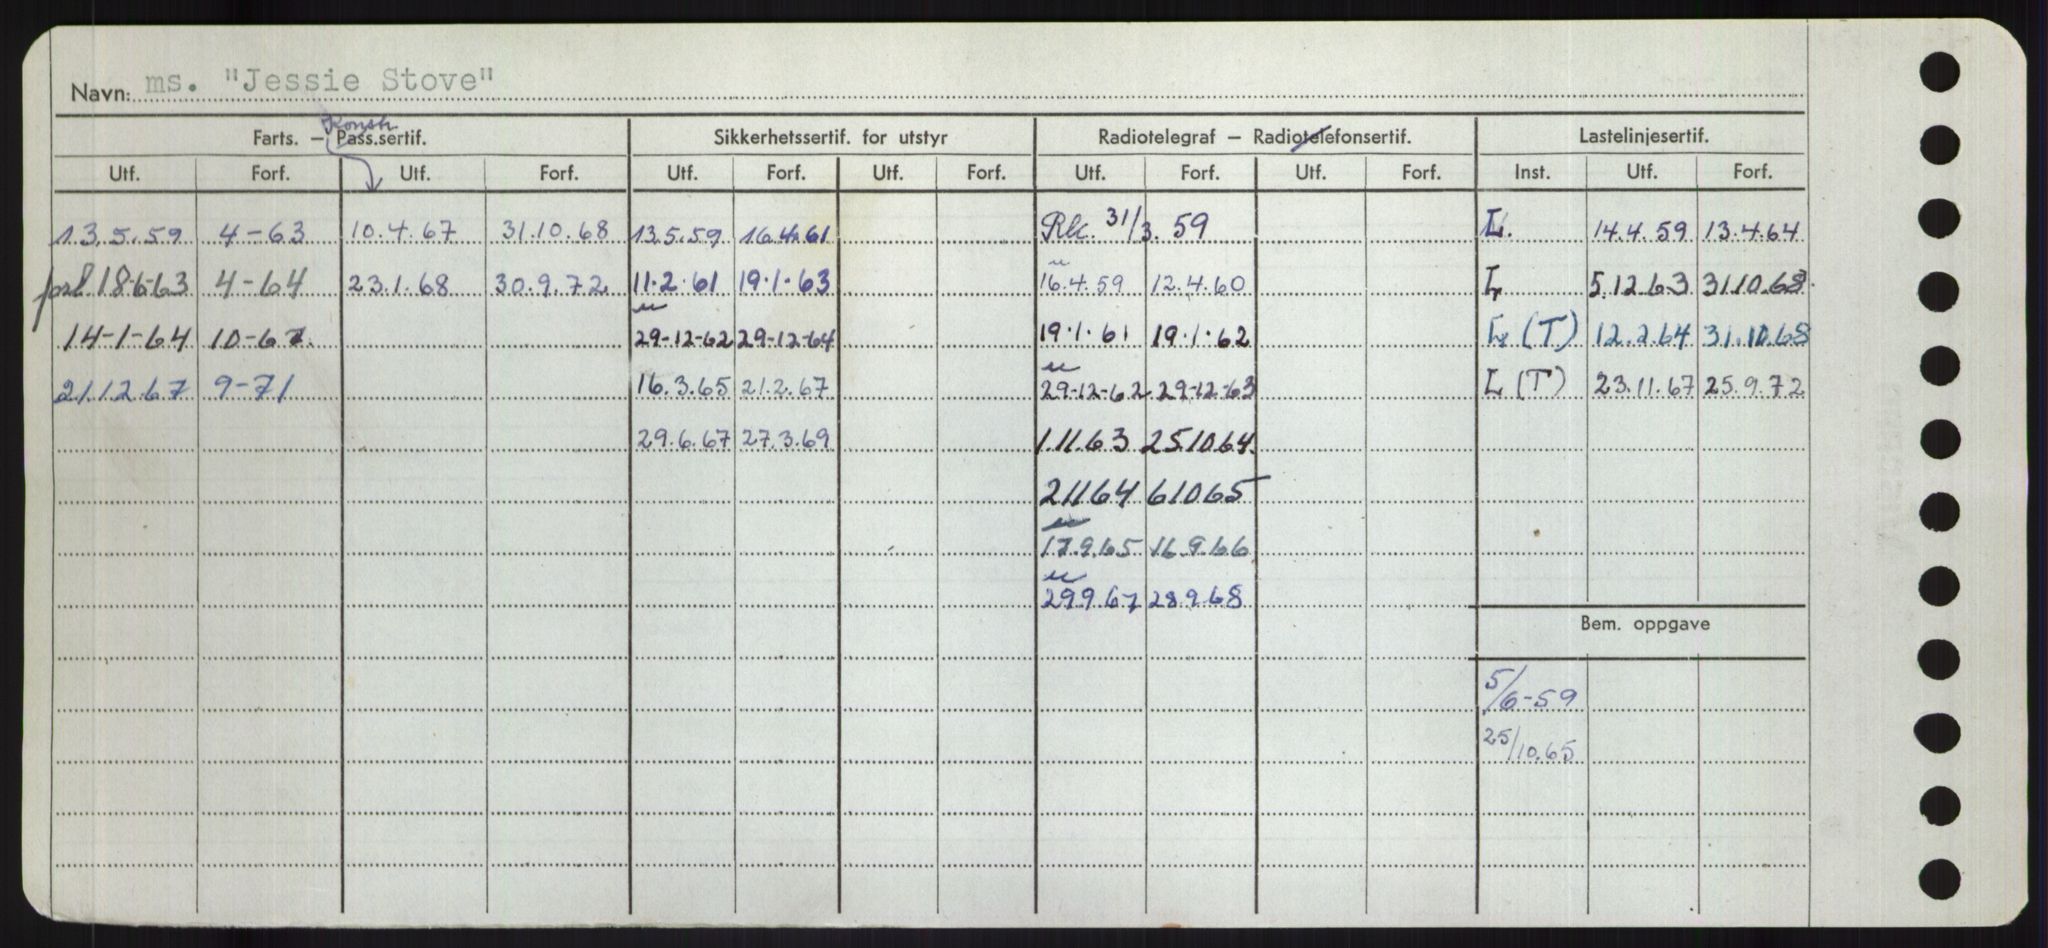 Navn: ms. "Jessie Stove"
Konstr
Farts. — Pass.sertif. Sikkerhetssertif. for utstyr Radiotelegraf — Radiotelefonsertif. Lastelinjesertif.
Utf. Forf. Utf. Forf. Utf. Forf. Utf. Forf. Utf. Forf. Utf. Forf. Inst. Utf. Forf.
13.5.59 4-63 10.4.67 31.10.68 13.5.59 16.4.61 31/3.59 L. 14.4.59 13.4.64
forl 18-6-63 4-64 23.1.68 30.9.72 11.2.61 19.1.63 16.4.59 12.4.60 L 5.12.63 31.10.68
14-1-64 10-67. 29-12-62 29-12-64 19.1.61 19.1.62 L (T) 12.2.64 31.10.68
21.12.67 9-71 16.3.65 21.2.67 29-12-62 29-12-63 L (T) 23.11.67 25.9.72
29.6.67 27.3.69 1.11.63 25.10.64.
21164 61065
17.9.65 16.9.66
29.9.67 28.9.68
Bem. oppgave
5/6-59
25/10.65